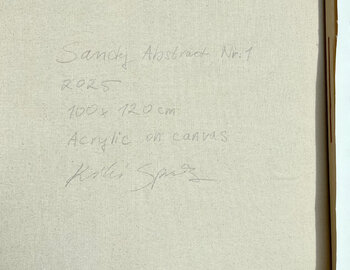 Sandy Abstract Nr. 1
2025
100 x 120 cm
Acrylic on canvas